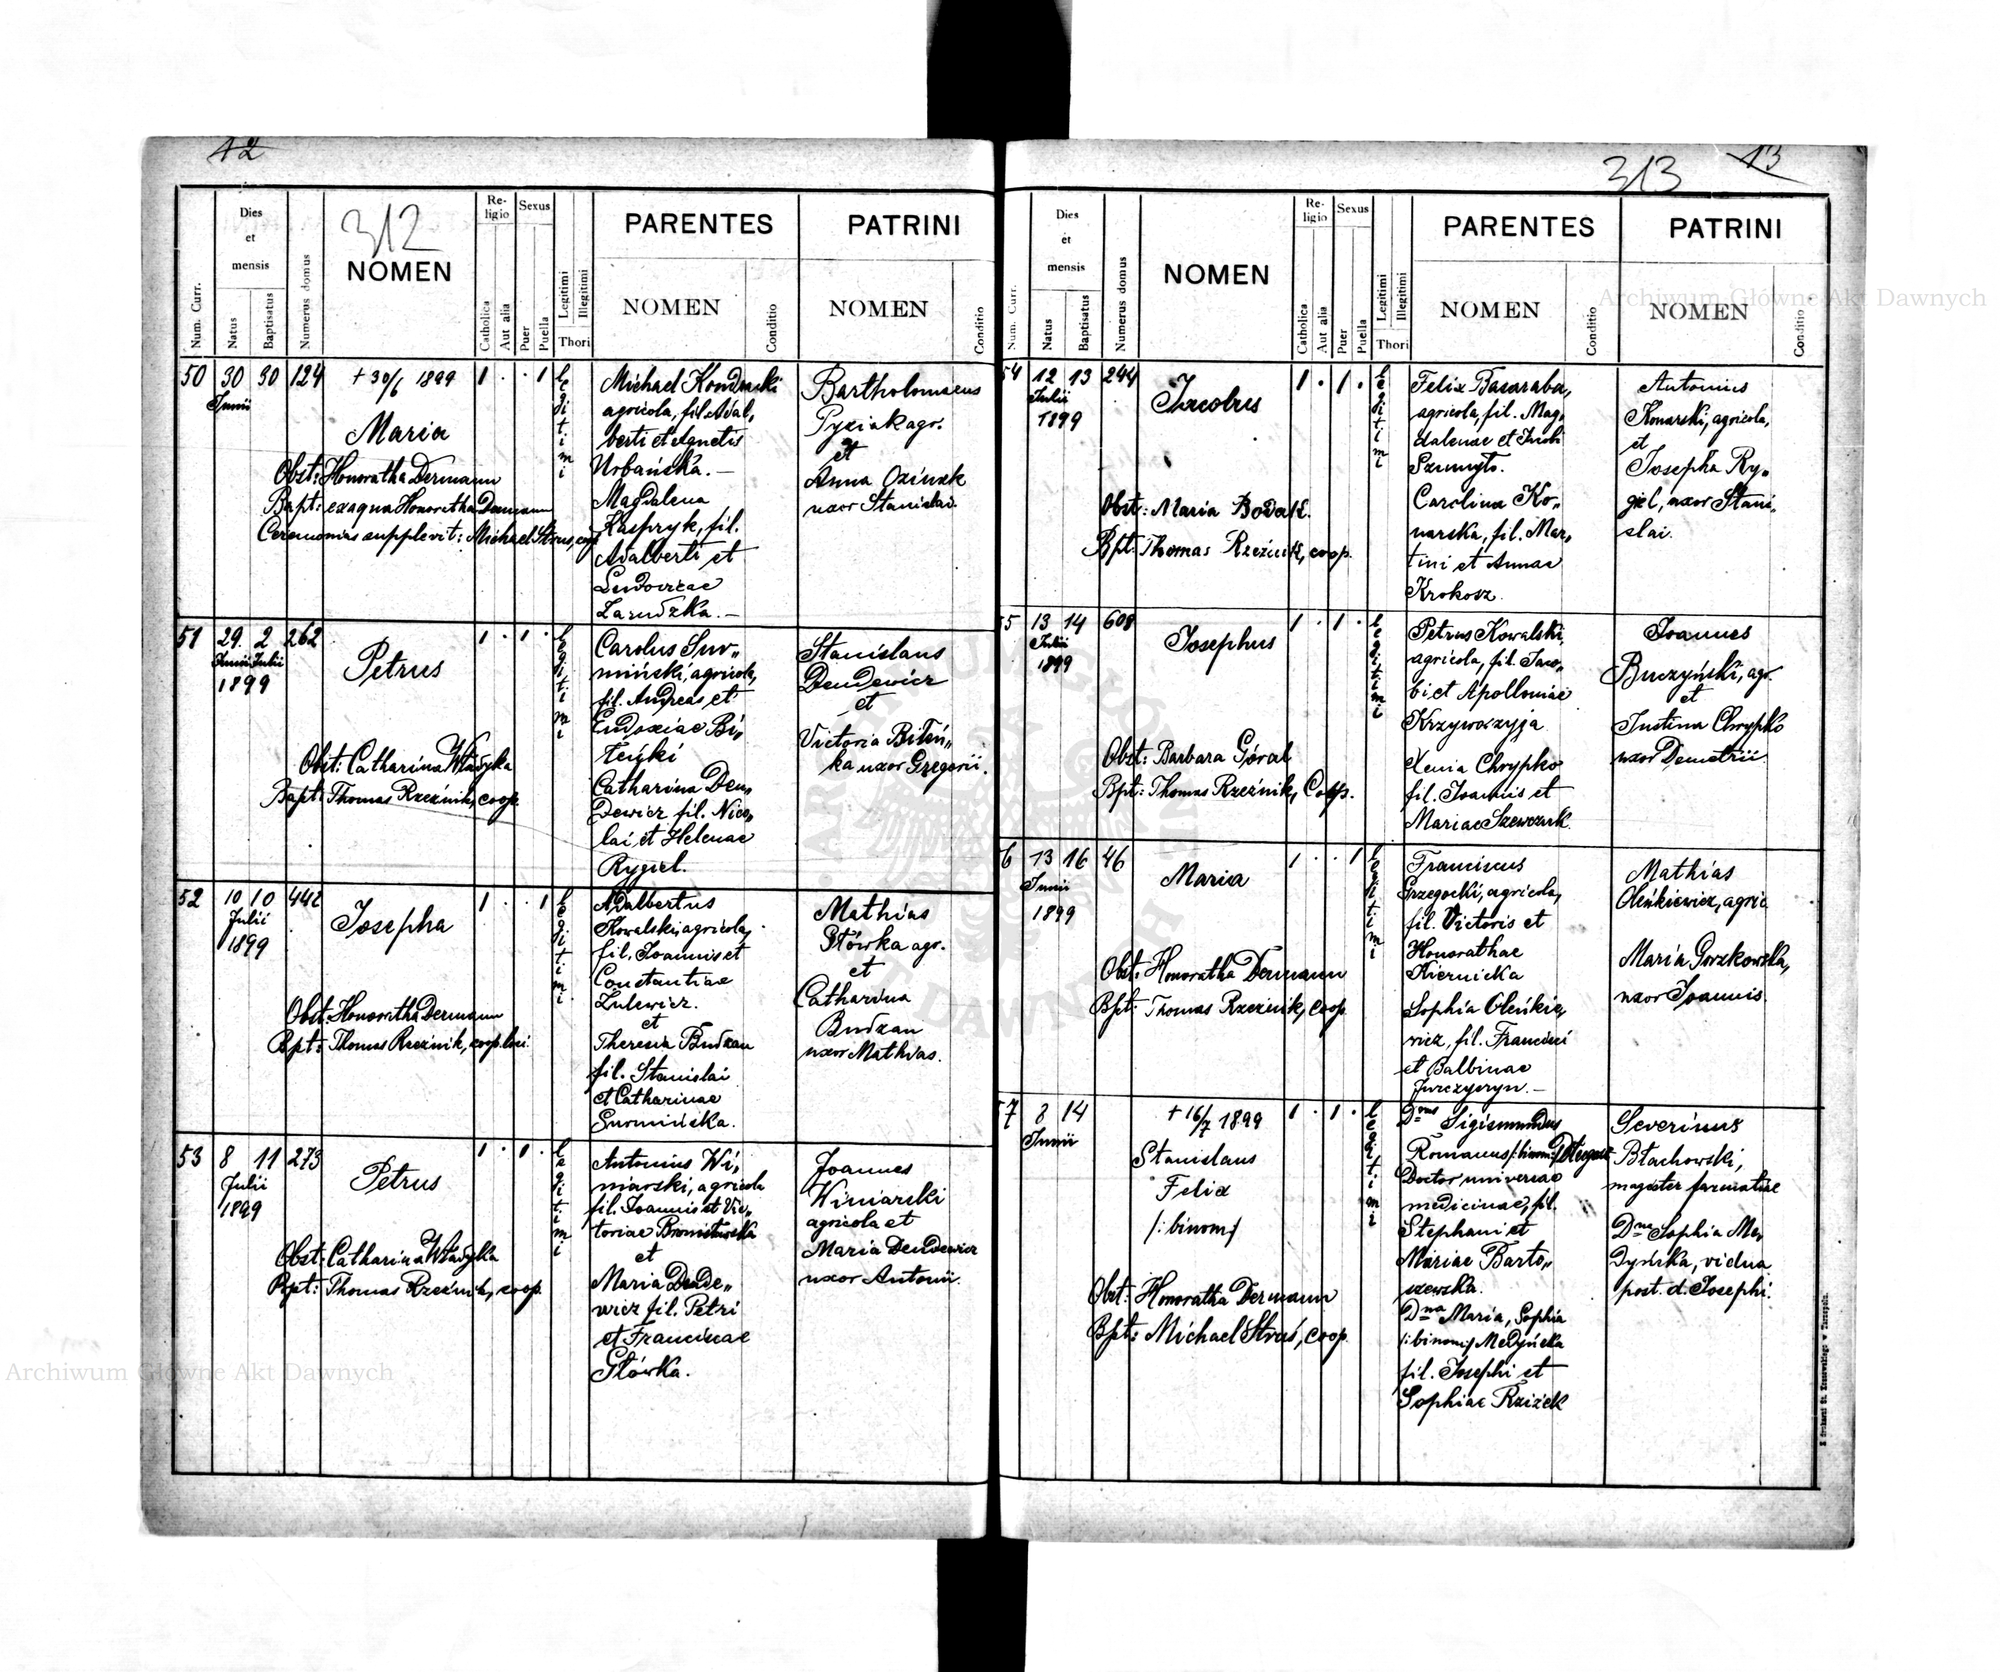 12
312
Num. Curr.
Dies
et
mensis
Natus
Baptisatus
Numerus domus
NOMEN
Re-
ligio
Catholica
Aut alia
Sexus
Puer
Puella
Legitimi
Illegitimi
Thori
PARENTES
NOMEN
Conditio
PATRINI
NOMEN
Conditio
50 30 30 124 + 30/6 1899 1 . . 1
Junii
Maria
Obst: Honoratha Dermann
Bapt: ex aqua Honoratha Dermann
Ceremonias supplevit: Michael Strus, coop
legitimi
Michael Kondracki
agricola, fil. Adal„
berti et Agnetis
Urbańska. —
Magdalena
Kaspryk, fil.
Adalberti et
Ludovicae
Zarudzka. —
Bartholomaeus
Pyziak agr.
et
Anna Ozimek
uxor Stanislai.
51 29 2 262 1 . 1 .
Junii Julii
1899
Petrus
Obst: Catharina Władyka
Bapt: Thomas Rzeźnik, coop.
legitimi
Carolus Sur„
miński, agricola,
fil. Andreas et
Eudoxiae Bi„
leńki
Catharina Den„
dewicz fil. Nico„
lai et Helenae
Rygiel.
Stanislaus
Dendewicz
et
Victoria Bileń„
ka uxor Gregorii.
52 10 10 442 1 . . 1
Julii
1899
Josepha
Obst: Honoratha Dermann
Bpt: Thomas Rzeźnik, coop. loci.
legitimi
Adalbertus
Kowalski, agricola,
fil. Joannis et
Constantiae
Zulewicz.
et
Theresia Budzan
fil. Stanislai
et Catharinae
Surmińska.
Mathias
Główka agr.
et
Catharina
Budzan
uxor Mathias.
53 8 11 273 1 . 1 .
Julii
1899
Petrus
Obst: Catharina Władyka
Bpt: Thomas Rzeźnik, coop.
legitimi
Antonius Wi„
niarski, agricola
fil. Joannis et Vic„
toriae Bronisławska
et
Maria Dende„
wicz fil. Petri
et Franciscae
Główka.
Joannes
Winiarski
agricola et
Maria Dendewicz
uxor Antonii.
13
313
Num. Curr.
Dies
et
mensis
Natus
Baptisatus
Numerus domus
NOMEN
Re-
ligio
Catholica
Aut alia
Sexus
Puer
Puella
Legitimi
Illegitimi
Thori
PARENTES
NOMEN
Conditio
PATRINI
NOMEN
Conditio
54 12 13 244 1 . 1 .
Julii
1899
Jacobus
Obst: Maria Bodak.
Bpt: Thomas Rzeźnik, coop.
legitimi
Felix Basaraba,
agricola, fil. Mag„
dalenae et Jacobi
Szumyło.
Carolina Ko„
narska, fil. Mar„
tini et Annae
Krokosz.
Antonius
Konarski, agricola,
et
Josepha Ry„
giel, uxor Stani„
slai.
5 13 14 608 1 . 1 .
Julii
1899
Josephus
Obst: Barbara Góral
Bpt: Thomas Rzeźnik, Coop.
legitimi
Petrus Kowalski,
agricola, fil. Jaco„
bi et Apolloniae
Krzyworzyja
Xenia Chrypko
fil. Joannis et
Mariae Szewczuk.
Joannes
Buczyński, agr.
et
Justina Chrypko
uxor Demetrii.
6 13 16 46 1 . . 1
Junii
1899
Maria
Obst: Honoratha Dermann
Bpt: Thomas Rzeźnik, coop
legitimi
Franciscus
Grzegocki, agricola,
fil. Victoris et
Honorathae
Kiernicka
Sophia Oleńkie„
wicz, fil. Francisci
et Balbinae
Jurczyszyn. —
Mathias
Oleńkiewicz, agric.
Maria Gorzkowska,
uxor Joannis.
7 8 14 + 16/7 1899 1 . 1 .
Junii
Stanislaus
Felix
/: binom :/
Obst: Honoratha Dermann
Bpt: Michael Struś, coop.
legitimi
Dnus Sigismundus
Romanus /: binom :/
Doctor universae
medicinae, fil.
Stephani et
Mariae Barto„
szewska.
Dna Maria, Sophia
/: binom :/ Medyńska
fil. Josephi et
Sophiae Rziżek
Severinus
Błachowski,
magister farmatiae
Dna Sophia Me„
dyńska, vidua
post. d. Josephi.
Z drukarni St. Kossowskiego w Tarnopolu.
Archiwum Główne Akt Dawnych
Archiwum Główne Akt Dawnych